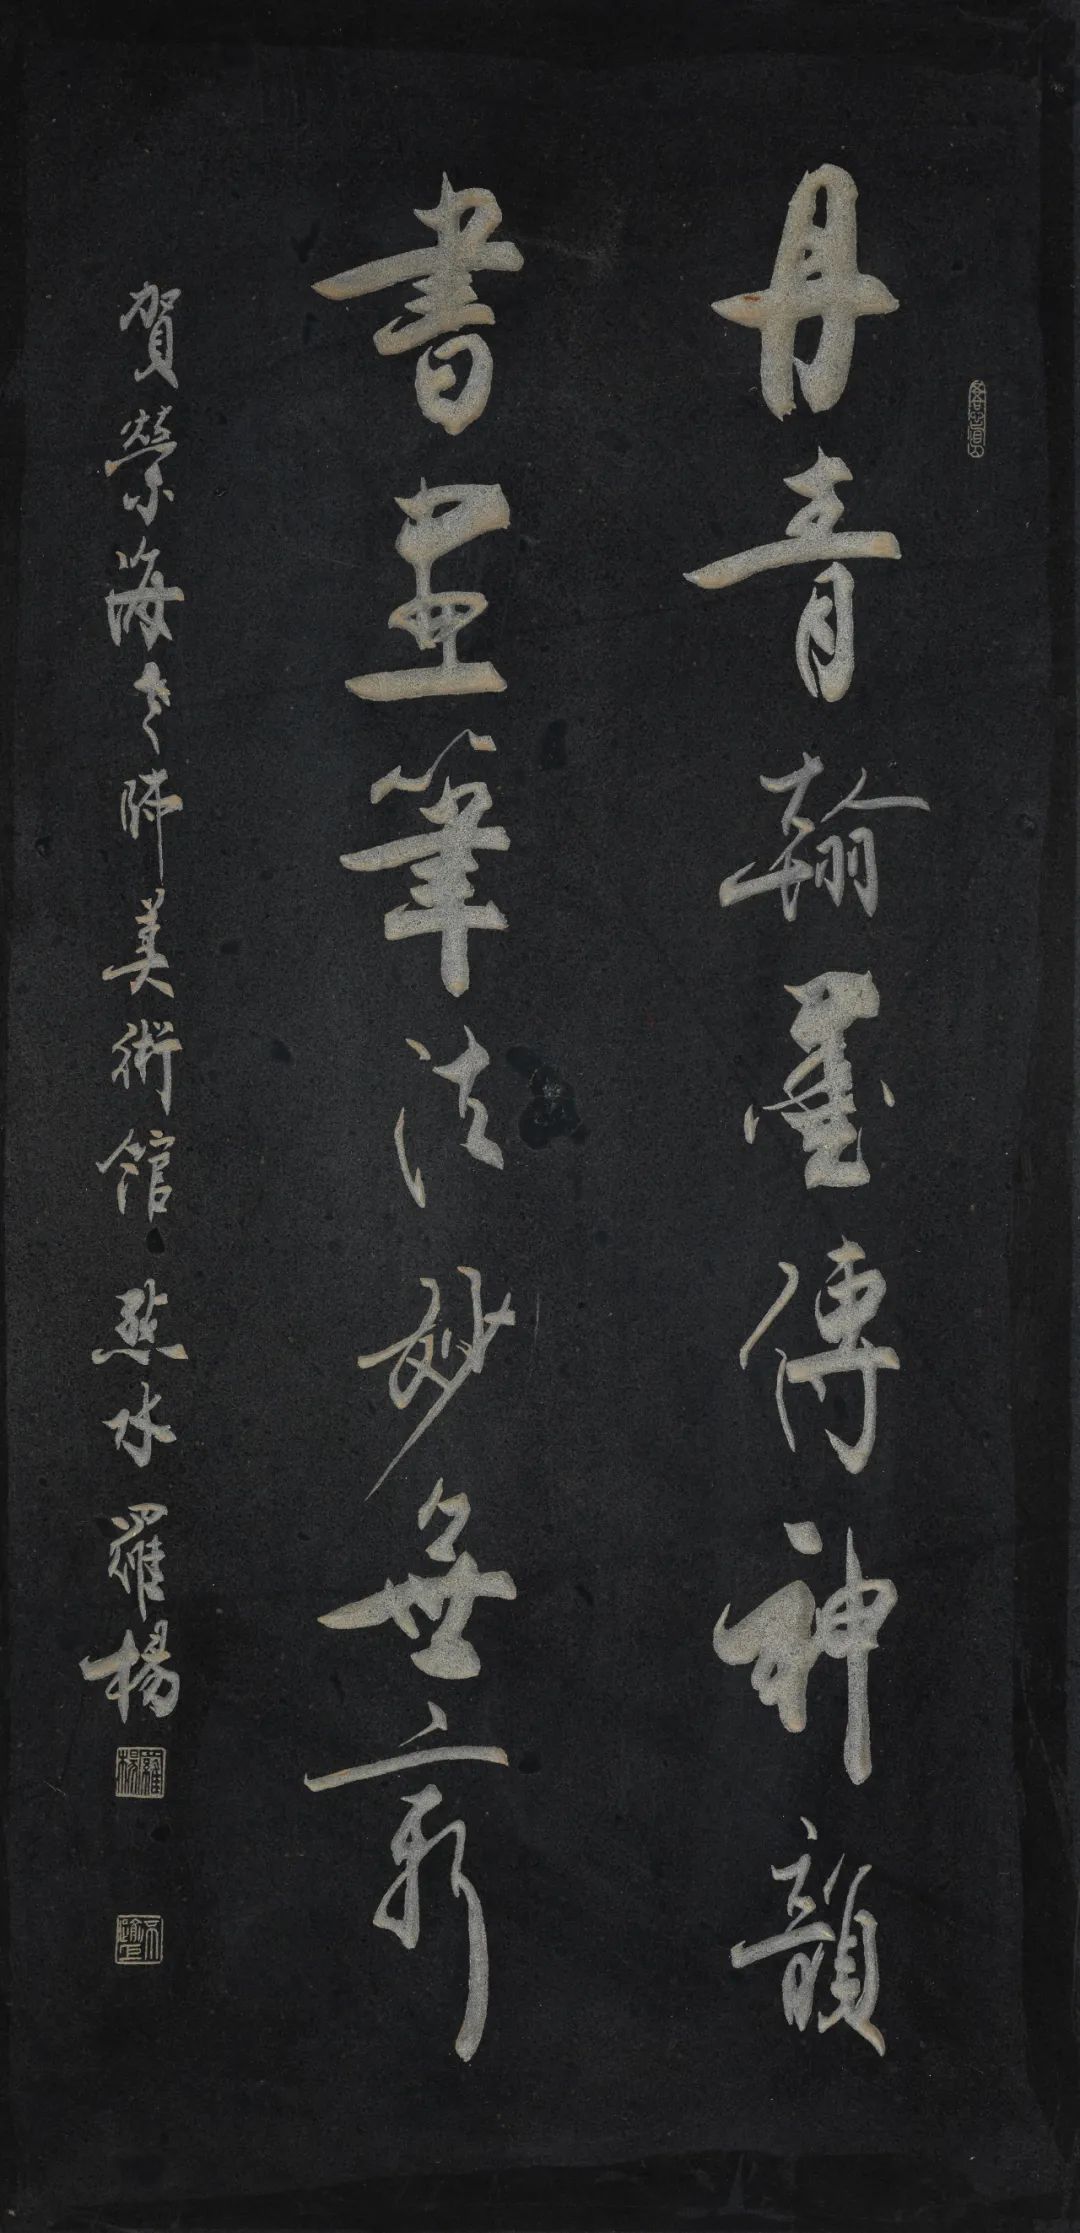 丹青翰墨傳神韻
書畫筆法妙無窮
賀榮海老師美術館 點水 羅楊
羅楊